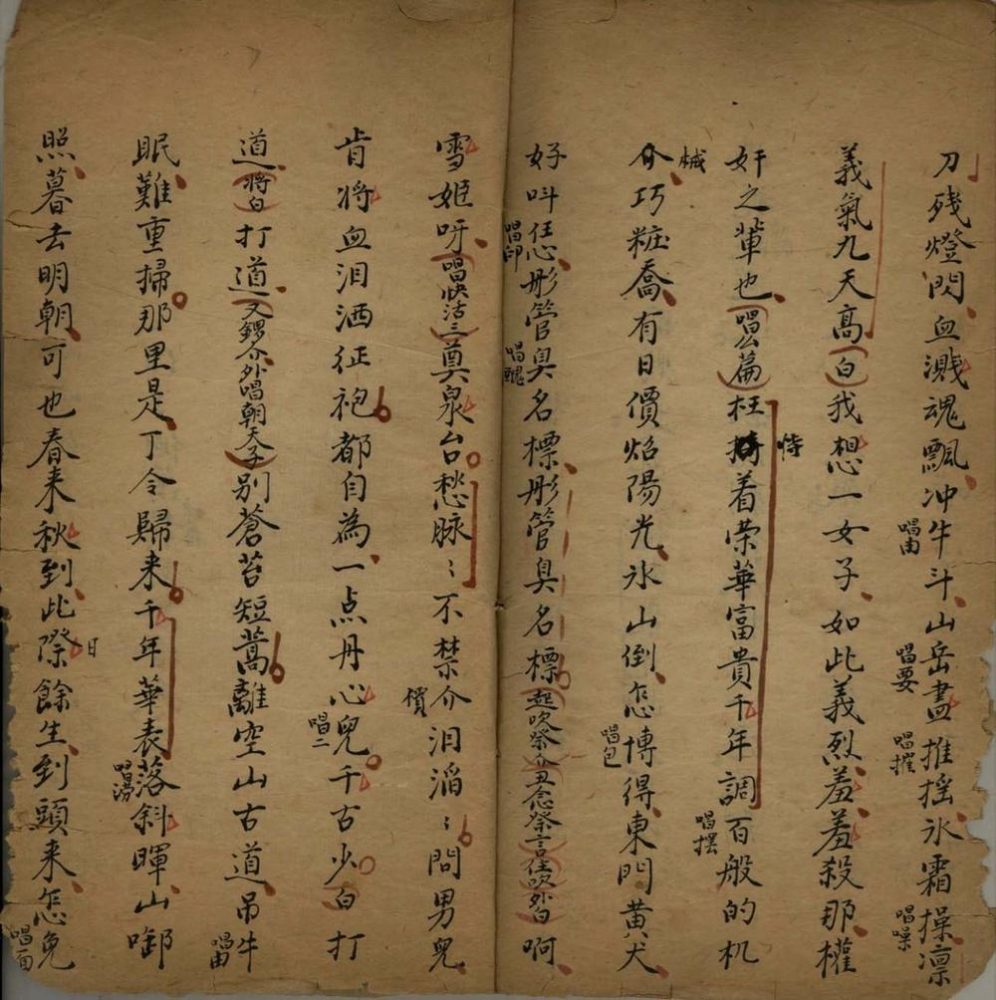 刀残燈閃血濺魂飄冲牛斗山岳盡推揺氷霜操凛
唱由
唱要
唱摧
唱噪
義氣九天高白我想一女子如此義烈羞羞殺那權
奸之輩也唱么篇枉着荣華富貴千年調百般的机
恃
唱摆
械
介巧粧喬有日價焰陽光氷山倒怎博得東門黄犬
唱包
好呌任恁彤管臭名標彤管臭名標起吹祭介丑念祭言住吹外白啊
唱印
唱醜
雪姬呀唱快活三奠泉台愁脉〻不禁介泪滔〻問男兒
價
肯将血泪洒征袍都自為一点丹心兒千古少白打
唱二
道将白打道又鑼介外唱朝天子别蒼苔短蒿離空山古道吊牛
唱由
眠難重掃那里是丁令歸来千年華表落斜暉山啣
唱湯
照暮去明朝可也春来秋到此際餘生到頭来怎免
日
唱面